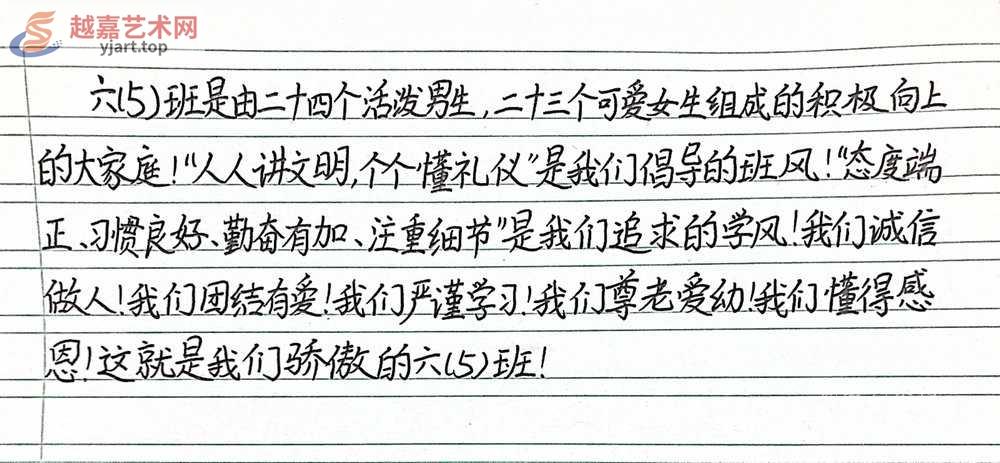 越嘉艺术网
yjart.top
六(5)班是由二十四个活泼男生,二十三个可爱女生组成的积极向上
的大家庭!“人人讲文明,个个懂礼仪”是我们倡导的班风!“态度端
正、习惯良好、勤奋有加、注重细节”是我们追求的学风!我们诚信
做人!我们团结有爱!我们严谨学习!我们尊老爱幼!我们懂得感
恩!这就是我们骄傲的六(5)班!